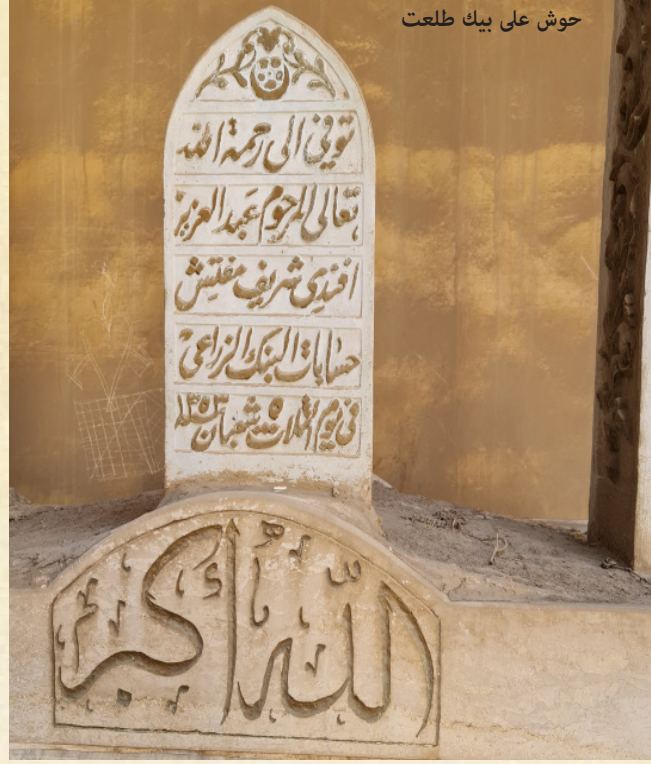 حوش على بيك طلعت
توفي الى رحمة الله
تعالى المرحوم عبد العزيز
افندي شريف مفتيش
حسابات البنك الزراعي
في يوم الثلاث ٥ شعبان سنة
الله أكبر